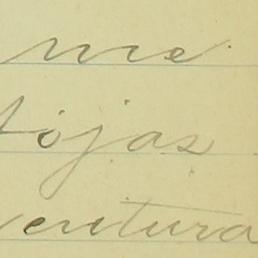 me
tójas
ventura